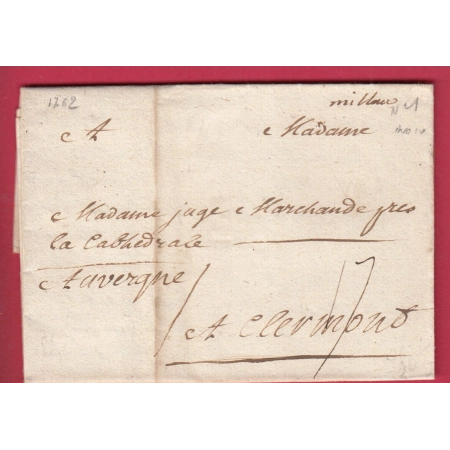 1762
millau
A Madame
Madame juge Marchande pres
la Cathedrale
Auvergne
A Clermont